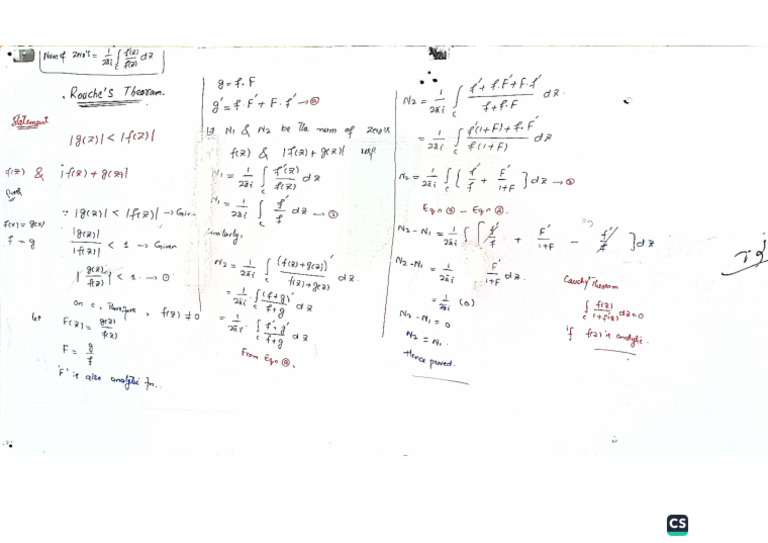 Num of Zero's = 1/2πi ∫c f'(z)/f(z) dz
Rouche's Theorem.
Statement
|g(z)| < |f(z)|
f(z) & |f(z) + g(z)|
∵ |g(z)| < |f(z)| → Given
f(z) = g(z)
f = g
|g(z)|/|f(z)| < 1 → Given
|g(z)/f(z)| < 1 → ①
on c, Therefore, f(z) ≠ 0
let
F(z) = g(z)/f(z)
F = g/f
'F' is also analytic fn..
g = f.F
g' = f.F' + F.f' → ②
N1 & N2 be the num of zero's
f(z) & |f(z) + g(z)|
N1 = 1/2πi ∫c f'(z)/f(z) dz
N1 = 1/2πi ∫c f'/f dz → ③
Similarly,
N2 = 1/2πi ∫c (f(z)+g(z))'/f(z)+g(z) dz
= 1/2πi ∫c (f+g)'/f+g
= 1/2πi ∫c f'+g'/f+g dz
From Eqn ②,
N2 = 1/2πi ∫c f'+f.F'+F.f'/f+f.F dz.
= 1/2πi ∫c f'(1+F)+f.F'/f(1+F) dz
N2 = 1/2πi ∫c [f'/f + F'/1+F] dz →
Eqn - Eqn
N2 - N1 = 1/2πi ∫ [f'/f + F'/1+F - f'/f] dz
N2 - N1 = 1/2πi ∫c F'/1+F dz.
= 1/2πi (0)
N2 - N1 = 0
N2 = N1
Hence proved.
Cauchy Theorem
if f(z) is analytic.
CS